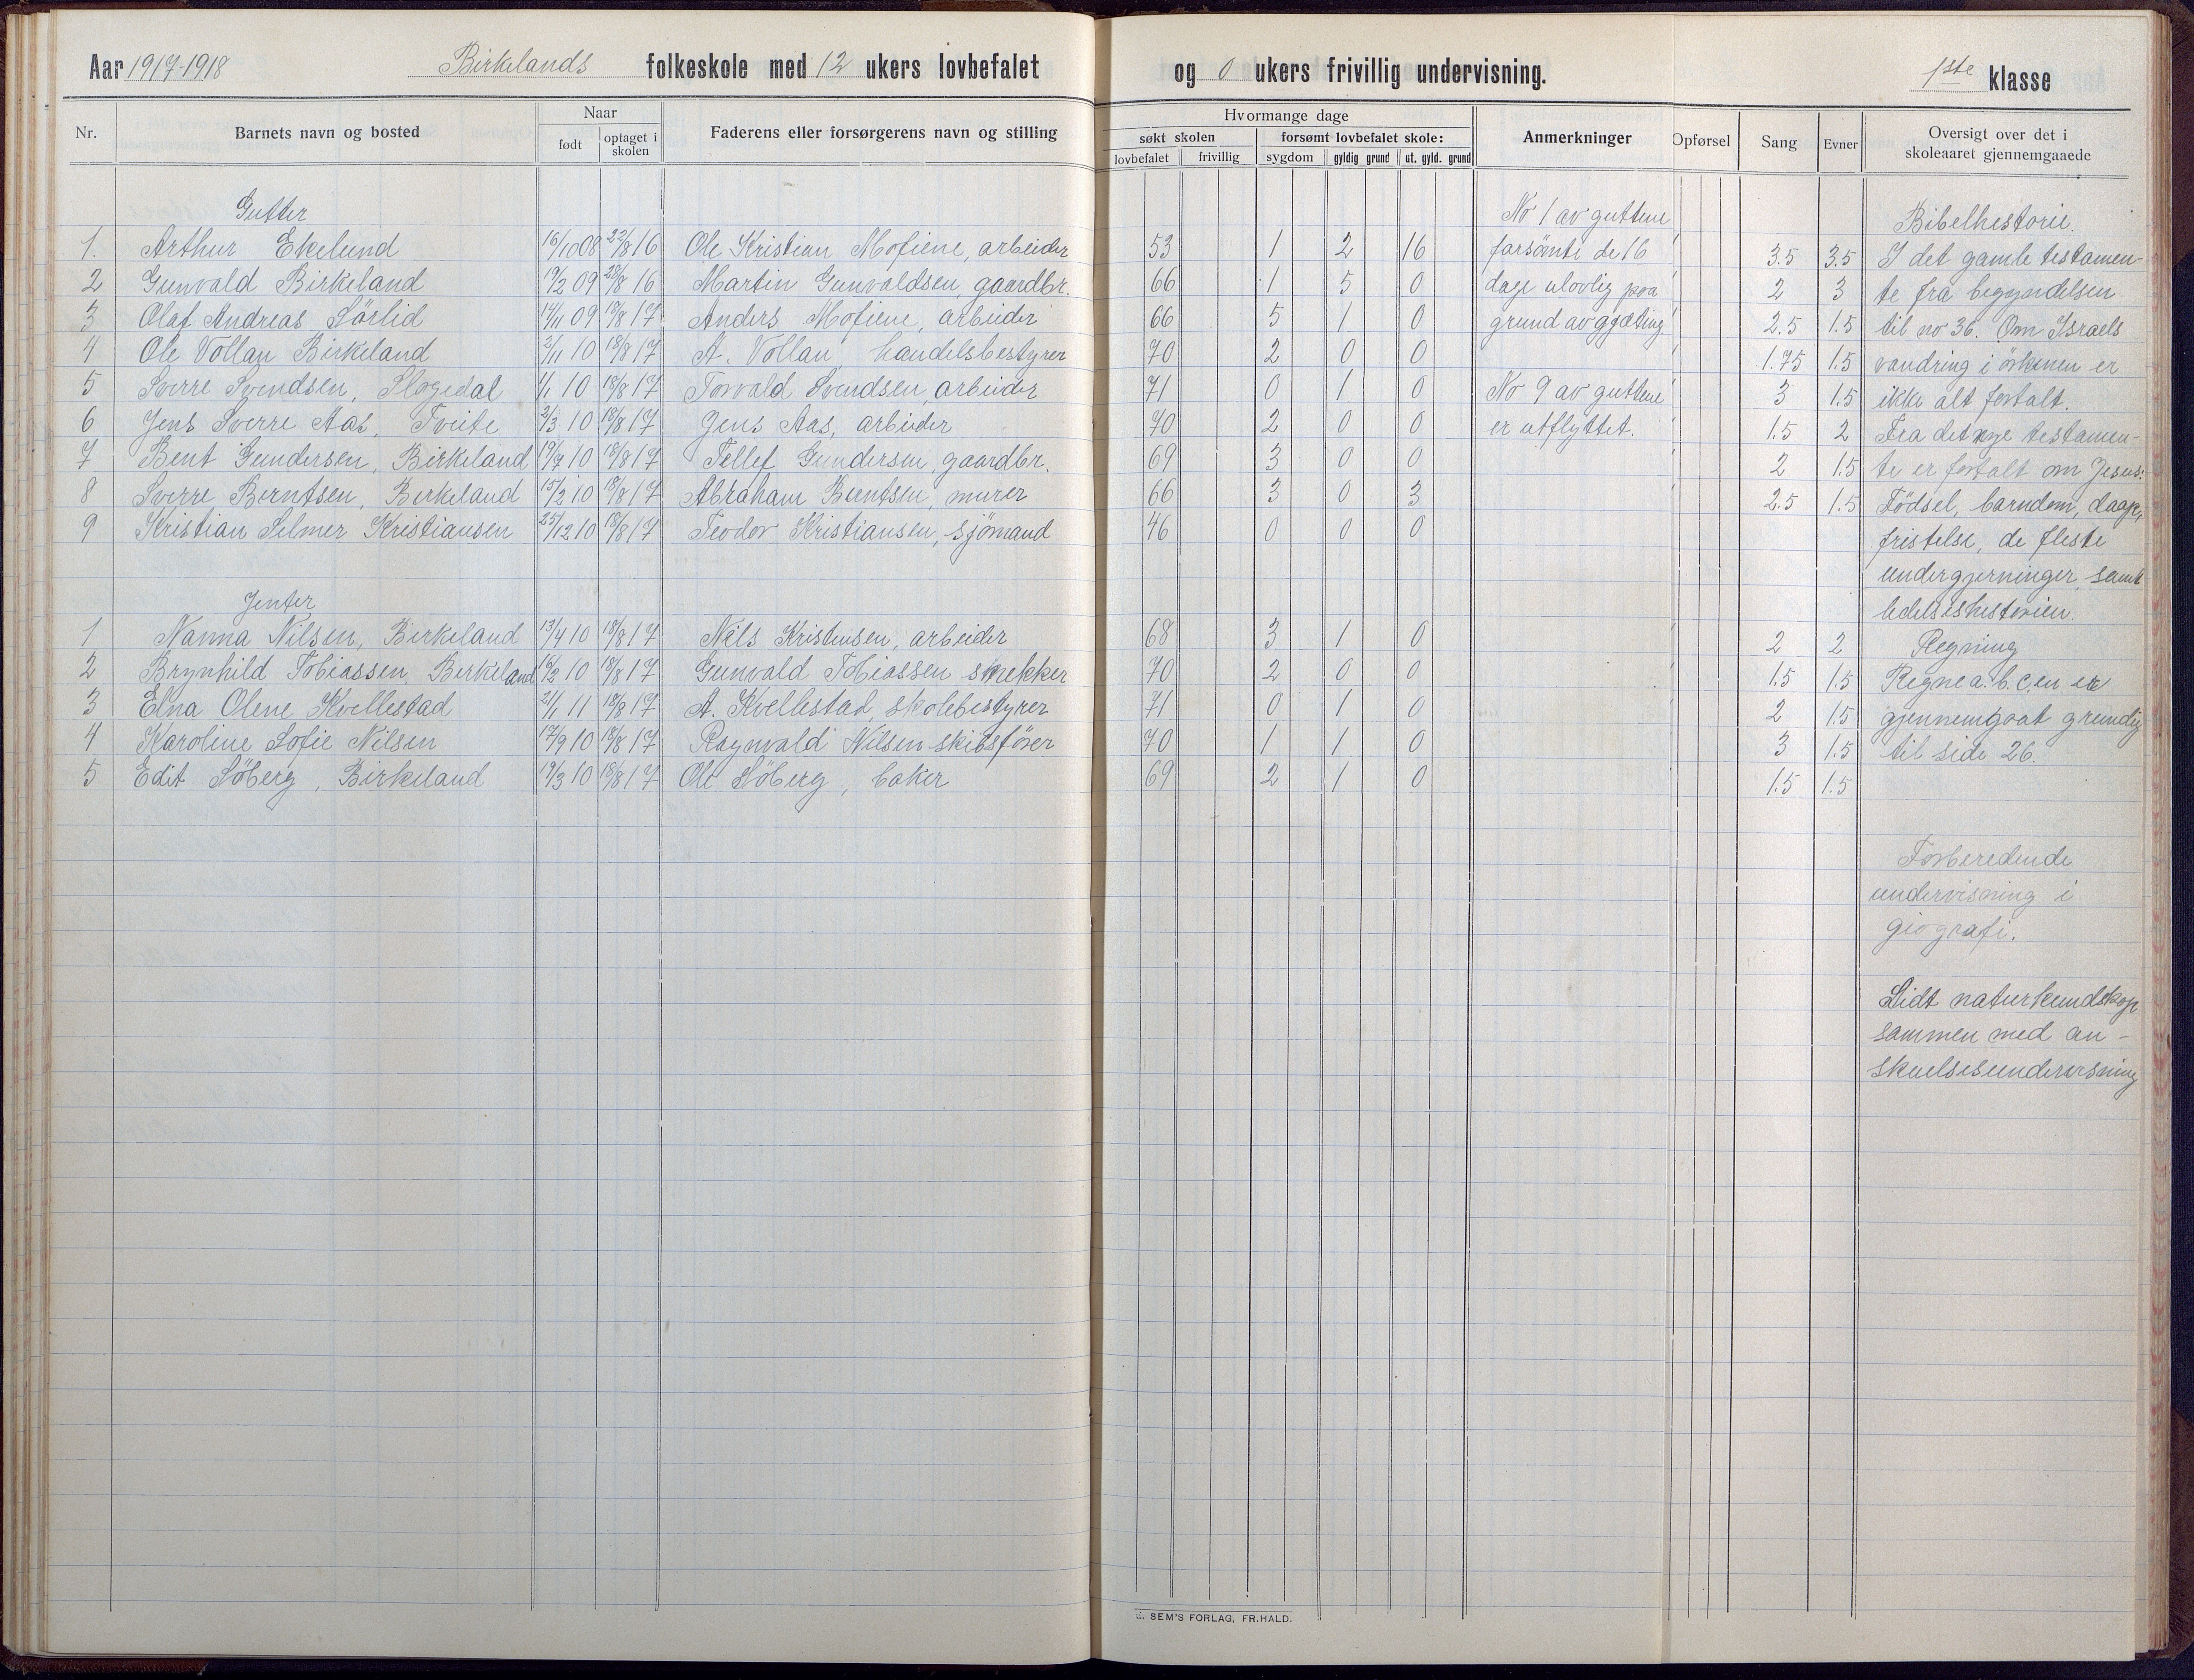 Aar 1917-1918 Birkelands folkeskole med 12 ukers lovbefalet og 0 ukers frivillig undervisning. 1ste klasse
Nr. Barnets navn og bosted Naar født optaget i skolen Faderens eller forsørgerens navn og stilling
Hvormange dage
søkt skolen forsømt lovbefalet skole:
lovbefalet frivillig sygdom gyldig grund ut. gyld. grund
Anmerkninger Opførsel Sang Evner Oversigt over det i skoleaaret gjennemgaaede
Gutter
1. Arthur Ekelund 16/10 08 22/8 16 Ole Kristian Mofiene, arbeider 53 1 2 16 3.5 3.5
2 Gunvald Birkeland 19/2 09 28/8 16 Martin Gunvaldsen, gaardbr. 66 1 5 0 2 3
3 Olaf Andreas Sörlid 14/11 09 18/8 17 Anders Mofiene, arbeider 66 5 1 0 2.5 1.5
4 Ole Vollan Birkeland 2/11 10 18/8 17 A. Vollan, handelsbestyrer 70 2 0 0 1.75 1.5
5 Sverre Svendsen, Slogedal 1/1 10 18/8 17 Torvald Svendsen, arbeider 71 0 1 0 3 1.5
6 Jens Sverre Aas, Tveite 2/3 10 18/8 17 Jens Aas, arbeider 70 2 0 0 1.5 2
7 Bent Gundersen, Birkeland 19/7 10 18/8 17 Tellef Gundersen, gaardbr. 69 3 0 0 2 1.5
8 Sverre Berntsen, Birkeland 15/2 10 18/8 17 Abraham Berntsen, murer 66 3 0 3 2.5 1.5
9 Kristian Selmer Kristiansen 25/12 10 18/8 17 Teodor Kristiansen, sjömand 46 0 0 0
Jenter
1 Nanna Nilsen, Birkeland 13/4 10 18/8 17 Nils Kristensen, arbeider 68 3 1 0 2 2
2 Brynhild Tobiassen, Birkeland 16/2 10 18/8 17 Gunvald Tobiassen snekker 70 2 0 0 1.5 1.5
3 Elna Olene Kvellestad 21/1 11 18/8 17 A. Kvellestad, skolebestyrer 71 0 1 0 2 1.5
4 Karoline Sofie Nilsen 17/9 10 18/8 17 Ragnvald Nilsen skibsförer 70 1 1 0 3 1.5
5 Edit Söberg, Birkeland 19/3 10 18/8 17 Ole Söberg, baker 69 2 1 0 1.5 1.5
No 1 av guttene
forsömte de 16
dage ulovlig paa
grund av gjæting
No 9 av guttene
er utflyttet.
Bibelhestorie.
I det gamle testamen-
te fra begyndelsen
til no 36. Om Israels
vandring i örkenen er
ikke alt fortalt.
Fra det nye testamen-
te er fortalt om Jesus:
Födsel, barndom, daap,
fristelse, de fleste
undergjerninger, samt
lidelseshistorien.
Regning
Regne a.b.c.en er
gjennemgaat grundig
til side 26.
Forberedende
undervisning i
giografi.
Lidt naturkundskap
sammen med an-
skuelsesundervisning
E. SEM'S FORLAG, FR.HALD.